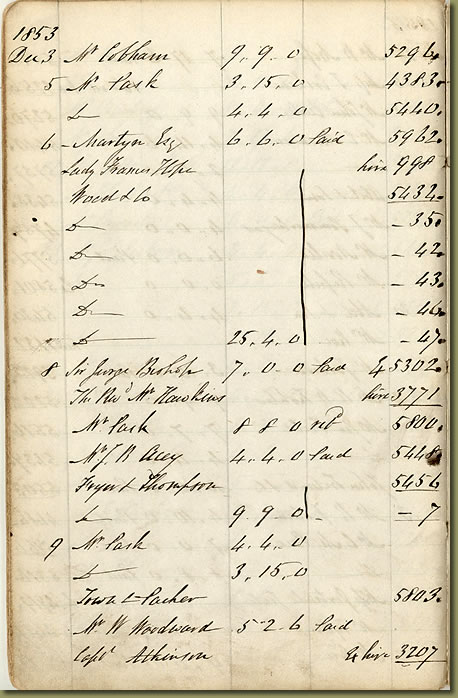 1853
Dec 3 Mr Cobham 9. 9. 0 5296.
5 Mr Cash 3. 15. 0 4383.
Do 4. 4. 0 5440.
6 - Martyn Esq 6. 6. 0 paid 5962.
Lady Frances Hope hire 998
Wood & Co 5432.
Do - 35.
Do - 42.
Do - 43.
Do - 46.
Do 25. 4. 0 - 47.
8 Sir George Bishop 7. 0. 0 paid 5302.
The Revd Mr Hawkins hire 3771
Mr Cash 8 8 0 5800.
Mr J. B 4. 4. 0 paid 5448
Fryer & Thompson 5456
Do 9. 9. 0 - 7
9 Mr Cash 4. 4. 0
Do 3. 15. 0
Towa & Packer 5803.
Mr W Woodward 5 - 2. 6 paid
Capt Atkinson hire 3207